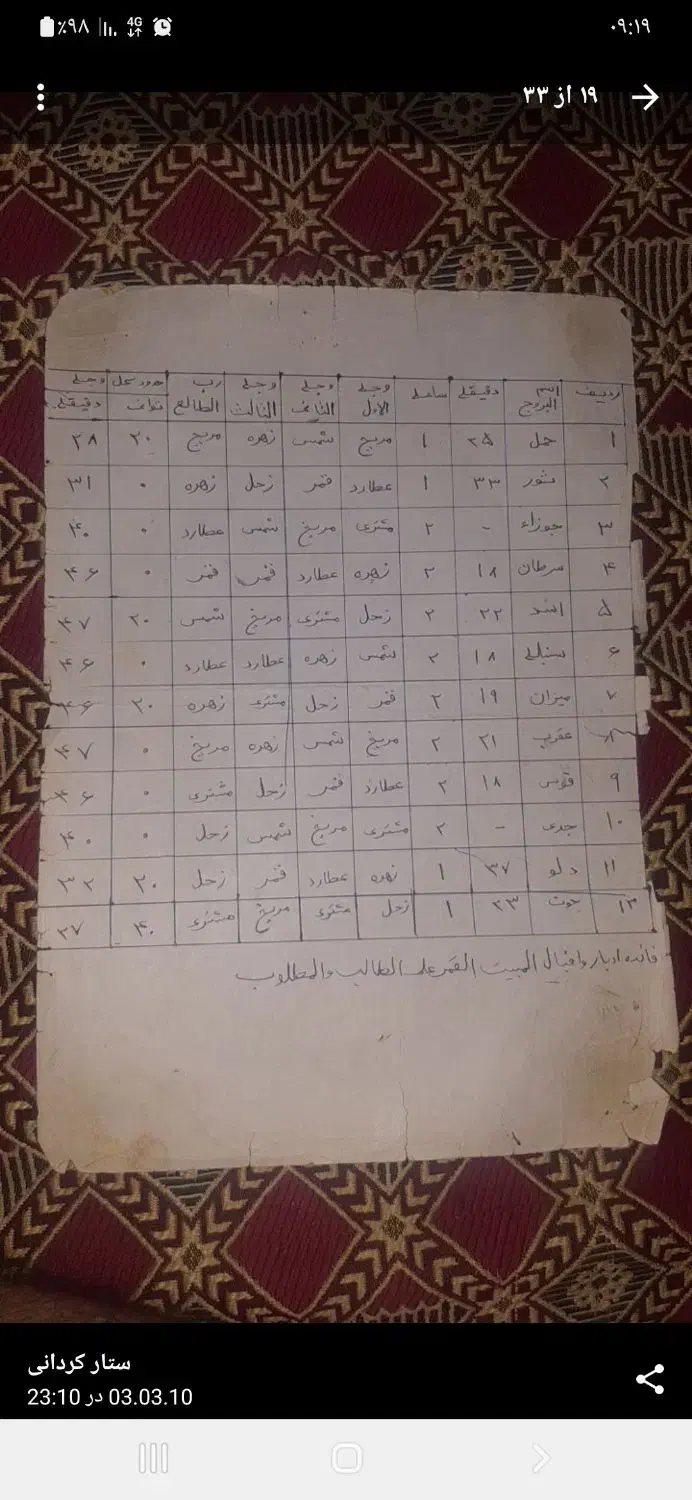 ۰۹:۱۹ ٪۹۸ 4G
۱۹ از ۳۳
ردیف اسم البروج دقیقه ساعه وجه الاول وجه الثانی وجه الثالث رب الطالع وجه دقیقه
۱ حمل ۲۵ ۱ مریخ شمس زهره مریخ ۲۰ ۲۸
۲ ثور ۳۳ ۱ عطارد قمر زحل زهره ۰ ۳۱
۳ جوزاء - ۲ مشتری مریخ شمس عطارد ۰ ۴۰
۴ سرطان ۱۸ ۲ زهره عطارد قمر قمر ۰ ۴۶
۵ اسد ۲۲ ۲ زحل مشتری مریخ شمس ۲۰ ۴۷
۶ سنبله ۱۸ ۲ شمس زهره عطارد عطارد ۰ ۴۶
۷ میزان ۱۹ ۲ قمر زحل مشتری زهره ۲۰ ۴۶
۸ عقرب ۲۱ ۲ مریخ شمس زهره مریخ ۰ ۴۷
۹ قوس ۱۸ ۲ عطارد قمر زحل مشتری ۰ ۴۶
۱۰ جدی - ۲ مشتری مریخ شمس زحل ۰ ۴۰
۱۱ دلو ۳۷ ۱ زهره عطارد قمر زحل ۲۰ ۳۲
۱۲ حوت ۲۳ ۱ زحل مشتری مریخ مشتری ۴۰ ۲۷
ادبار و اقبال المبیت القمر علی الطالب والمطلوب
ستار کردانی
03.03.10 در 23:10